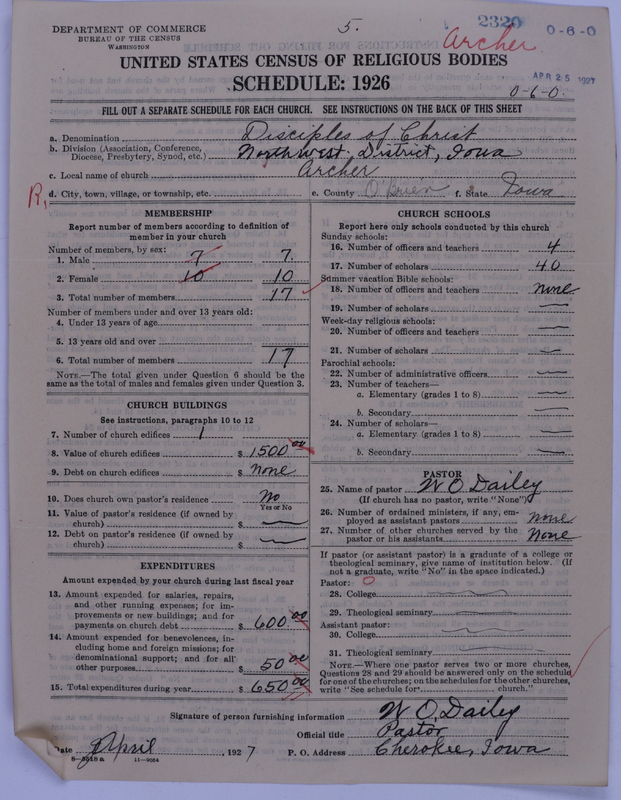 DEPARTMENT OF COMMERCE
BUREAU OF THE CENSUS
WASHINGTON
5.
2320
0-6-0
Archer.
UNITED STATES CENSUS OF RELIGIOUS BODIES
APR 25 1927
SCHEDULE: 1926
0-6-0.
FILL OUT A SEPARATE SCHEDULE FOR EACH CHURCH. SEE INSTRUCTIONS ON THE BACK OF THIS SHEET
a. Denomination Disciples of Christ
b. Division (Association, Conference, Diocese, Presbytery, Synod, etc.) Northwest District, Iowa
c. Local name of church Archer
R,
d. City, town, village, or township, etc. e. County O'Brien f. State Iowa
MEMBERSHIP
Report number of members according to definition of
member in your church
Number of members, by sex:
1. Male 7 7.
2. Female 10 10
3. Total number of members 17
Number of members under and over 13 years old:
4. Under 13 years of age
5. 13 years old and over
6. Total number of members 17
NOTE.—The total given under Question 6 should be
same as the total of males and females given under Question 3.
CHURCH BUILDINGS
See instructions, paragraphs 10 to 12
7. Number of church edifices 1
8. Value of church edifices $ 1500 00
9. Debt on church edifices $ none
10. Does church own pastor's residence No
Yes or No
11. Value of pastor's residence (if owned by
church) $ —
12. Debt on pastor's residence (if owned by
church) $ —
EXPENDITURES
Amount expended by your church during last fiscal year
13. Amount expended for salaries, repairs,
and other running expenses; for im-
provements or new buildings; and for
payments on church debt $ 600 00
14. Amount expended for benevolences, in-
cluding home and foreign missions; for
denominational support; and for all
other purposes $ 50 00
15. Total expenditures during year $ 650 00
CHURCH SCHOOLS
Report here only schools conducted by this church
Sunday schools:
16. Number of officers and teachers 4
17. Number of scholars 40
Summer vacation Bible schools:
18. Number of officers and teachers none
19. Number of scholars —
Week-day religious schools:
20. Number of officers and teachers —
21. Number of scholars —
Parochial schools:
22. Number of administrative officers —
23. Number of teachers—
a. Elementary (grades 1 to 8) —
b. Secondary —
24. Number of scholars—
a. Elementary (grades 1 to 8) —
b. Secondary —
PASTOR
25. Name of pastor W O Dailey
(If church has no pastor, write "None")
26. Number of ordained ministers, if any, em-
ployed as assistant pastors none
27. Number of other churches served by the
pastor or his assistants None
If pastor (or assistant pastor) is a graduate of a college or
theological seminary, give name of institution below. (If
not a graduate, write "No" in the space indicated.)
Pastor: O
28. College —
29. Theological seminary —
Assistant pastor:
30. College —
31. Theological seminary —
NOTE.—Where one pastor serves two or more churches,
Questions 28 and 29 should be answered only on the schedule
for one of the churches; on the schedules for the other churches,
write "See schedule for church."
Signature of person furnishing information W O, Dailey
Official title Pastor
Date April, 1927 P. O. Address Cherokee, Iowa
11—9054